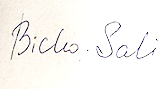 Bicho. Sali